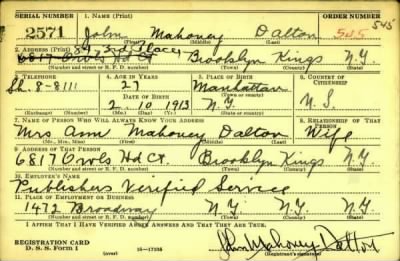 SERIAL NUMBER 1. NAME (Print) ORDER NUMBER
2571 John Mahoney Dalton 545 545
(First) (Middle) (Last)
2. ADDRESS (Print) 84 3rd Place
6817 Owls Hd Ct. Brooklyn Kings N.Y.
(Number and street or R. F. D. number) (Town) (County) (State)
3. TELEPHONE 4. AGE IN YEARS 5. PLACE OF BIRTH 6. COUNTRY OF CITIZENSHIP
27 Manhattan
DATE OF BIRTH (Town or county)
Sh. 8-8111 2 10 1913 N.Y. U.S.
(Exchange) (Number) (Mo.) (Day) (Yr.) (State or country)
7. NAME OF PERSON WHO WILL ALWAYS KNOW YOUR ADDRESS 8. RELATIONSHIP OF THAT PERSON
Mrs Ann Mahoney Dalton Wife
(Mr., Mrs., Miss) (First) (Middle) (Last)
9. ADDRESS OF THAT PERSON
6817 Owls Hd Ct. Brooklyn Kings N.Y.
(Number and street or R. F. D. number) (Town) (County) (State)
10. EMPLOYER'S NAME
Publishers Verified Service
11. PLACE OF EMPLOYMENT OR BUSINESS
1472 Broadway N.Y. N.Y. N.Y.
(Number and street or R. F. D. number) (Town) (County) (State)
I AFFIRM THAT I HAVE VERIFIED ABOVE ANSWERS AND THAT THEY ARE TRUE.
REGISTRATION CARD
D. S. S. Form 1 (over) 16-17105 John Mahoney Dalton
(Registrant's signature)